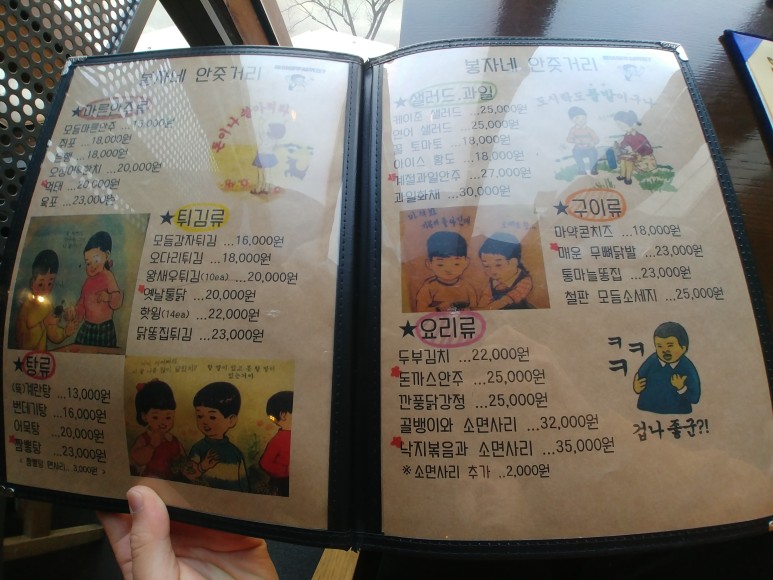 봉자네 안줏거리
★마른안주류
모듬마른안주 ...15,000원
쥐포 ...18,000원
...18,000원
...20,000원
먹태 ...20,000원
육포 ...23,000원
★튀김류
모듬감자튀김 ...16,000원
오다리튀김 ...18,000원
왕새우튀김(10ea) ...20,000원
옛날통닭 ...20,000원
핫윙(14ea) ...22,000원
닭똥집튀김 ...23,000원
★탕류
계란탕 ...13,000원
번데기탕 ...16,000원
어묵탕 ...20,000원
짬뽕탕 ...23,000원
< 짬뽕탕 면사리.. 3,000원 >
봉자네 안줏거리
★샐러드.과일
케이준 샐러드 ...25,000원
연어 샐러드 ...25,000원
꿀 토마토 ...18,000원
아이스 황도 ...18,000원
계절과일안주 ...27,000원
과일화채 ...30,000원
★구이류
마약콘치즈 ...18,000원
매운 무뼈닭발 ...23,000원
통마늘똥집 ...23,000원
철판 모듬소세지 ...25,000원
★요리류
두부김치 ...22,000원
돈까스안주 ...25,000원
깐풍닭강정 ...25,000원
골뱅이와 소면사리 ...32,000원
낙지볶음과 소면사리 ...35,000원
※소면사리 추가 ..2,000원
ㅋㅋ
ㅋ
겁나좋군?!